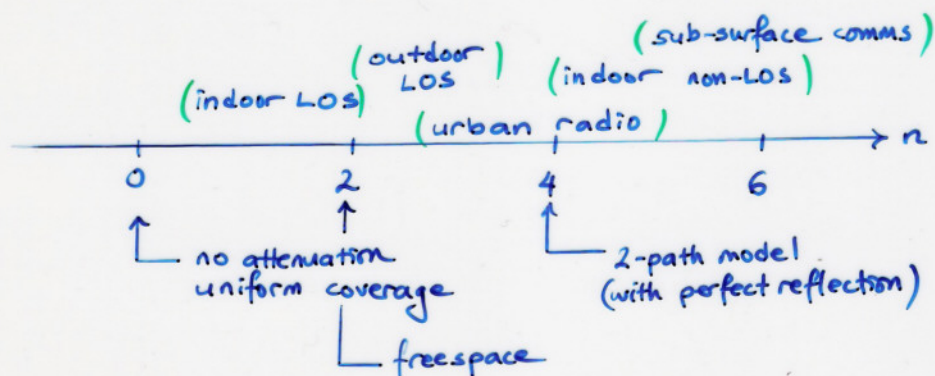 (sub-surface comms)
(outdoor
LOS)
(indoor non-LOS)
(indoor LOS)
(urban radio)
n
0 2 4 6
no attenuation
uniform coverage
2-path model
(with perfect reflection)
freespace